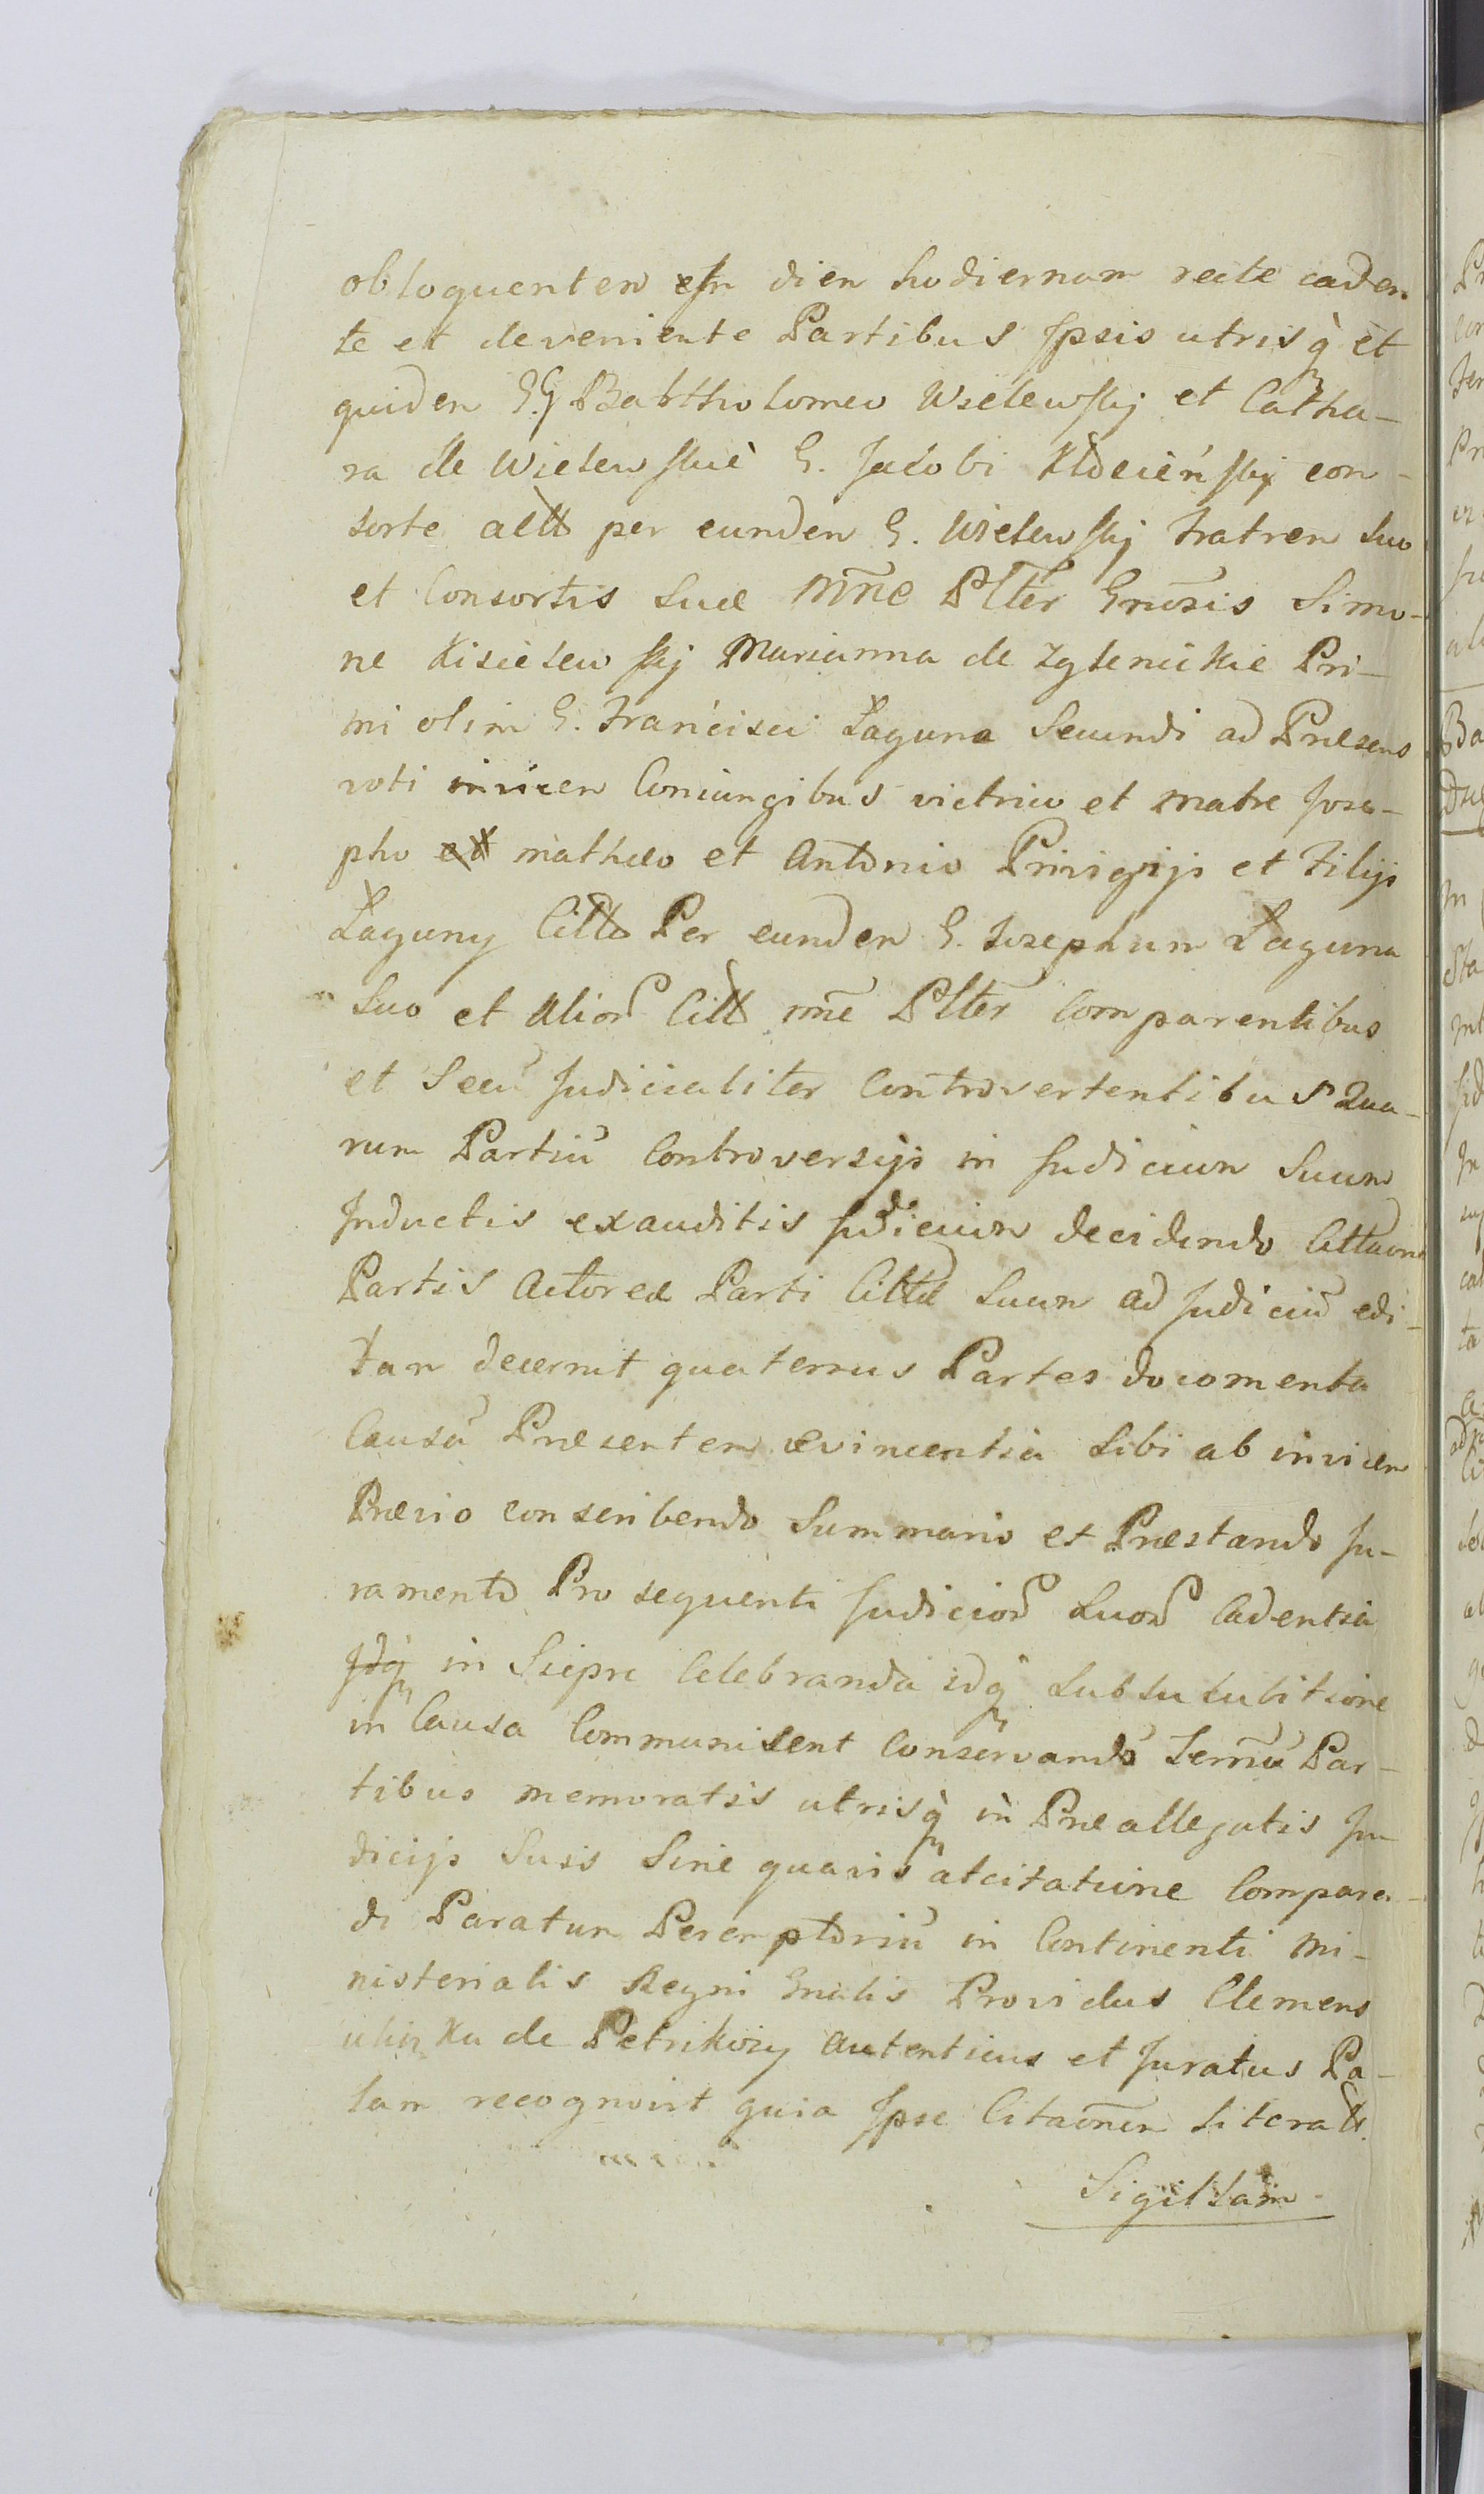 obloquentem in diem hodiernam recte caden
te et deveniente Partibus Ipsis utrisq et
quidem G.G. Barttholomeo Wselewskj et Catha-
ra de Wielewskie G. Jacobi Kłocieńskj con-
sorte actt per eundem G. Wielewskj Fratrem suo
et Consortis suæ Mne Pltter Gnosis Simo-
ne Kisielewskj Marianna de Zglenickie Pri-
mi olim G. Francisci Łaguna Secundi ad Præsens
voti invicem Coniungibus victrico et matre Jose-
pho et mathæo et Antonio Privignijs et Filijs
Łaguny Citts Per eundem G. Josephum Łaguna
Suo et Alior Citt mne Pltter Comparentibus
et Secu Judicialiter Controvertentibus Qua-
rum Partiu Controversijs in Judicium Suum
Inductis exauditis Judicium decidendo Cittaom
Partis Actoreæ Parti Cittæ Suum ad Judiciu edi-
tam decernit quatenus Partes documenta
Causa Præsentem evincentia Sibi ab invicem
Prævio conscribendo Summario et Præstando Ju-
ramento Pro sequenti Judicior Suor Cadentia
Idq in Siepre Celebranda idq sub succubitione
in Causa Communicent Conservando Termu Par-
tibus memoratis utrisq in Præallegatis Ju-
dicijs Suis Sine quavis atcitatione Comparen-
di Paratum Peremptoriu in Continenti Mi-
nisterialis Regni Gnalis Providus Clemens
de Petrikozy Autenticus et Juratus Pa-
lam recognovit quia Ipse Citaonem literatt
Sigillam